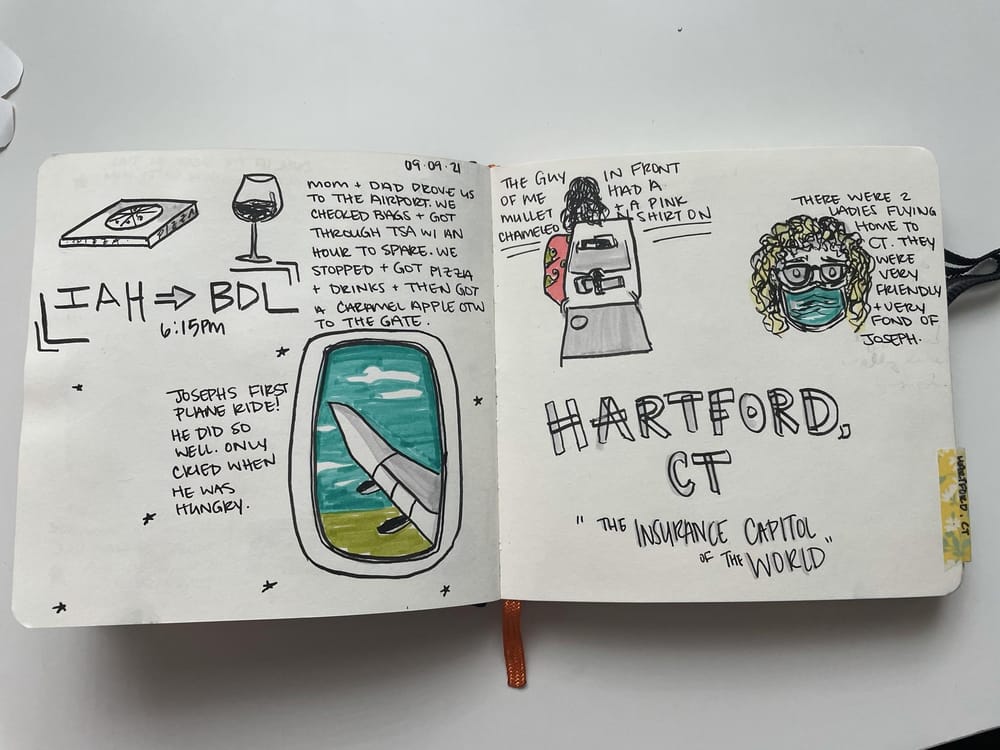 09.09.21
PIZZA
PIZZA
MOM + DAD DROVE US
TO THE AIRPORT. WE
CHECKED BAGS + GOT
THROUGH TSA W/ AN
HOUR TO SPARE. WE
STOPPED + GOT PIZZA
+ DRINKS + THEN GOT
A CARAMEL APPLE OTW
TO THE GATE.
IAH ⇒ BDL
6:15PM
JOSEPHS FIRST
PLANE RIDE!
HE DID SO
WELL. ONLY
CRIED WHEN
HE WAS
HUNGRY.
THE GUY IN FRONT
OF ME HAD A
MULLET + A PINK
CHAMELEO SHIRT ON
THERE WERE 2
LADIES FLYING
HOME TO
CT. THEY
WERE
VERY
FRIENDLY
+ VERY
FOND OF
JOSEPH.
HARTFORD,
CT
"THE INSURANCE CAPITOL
OF THE WORLD"
HARTFORD, CT